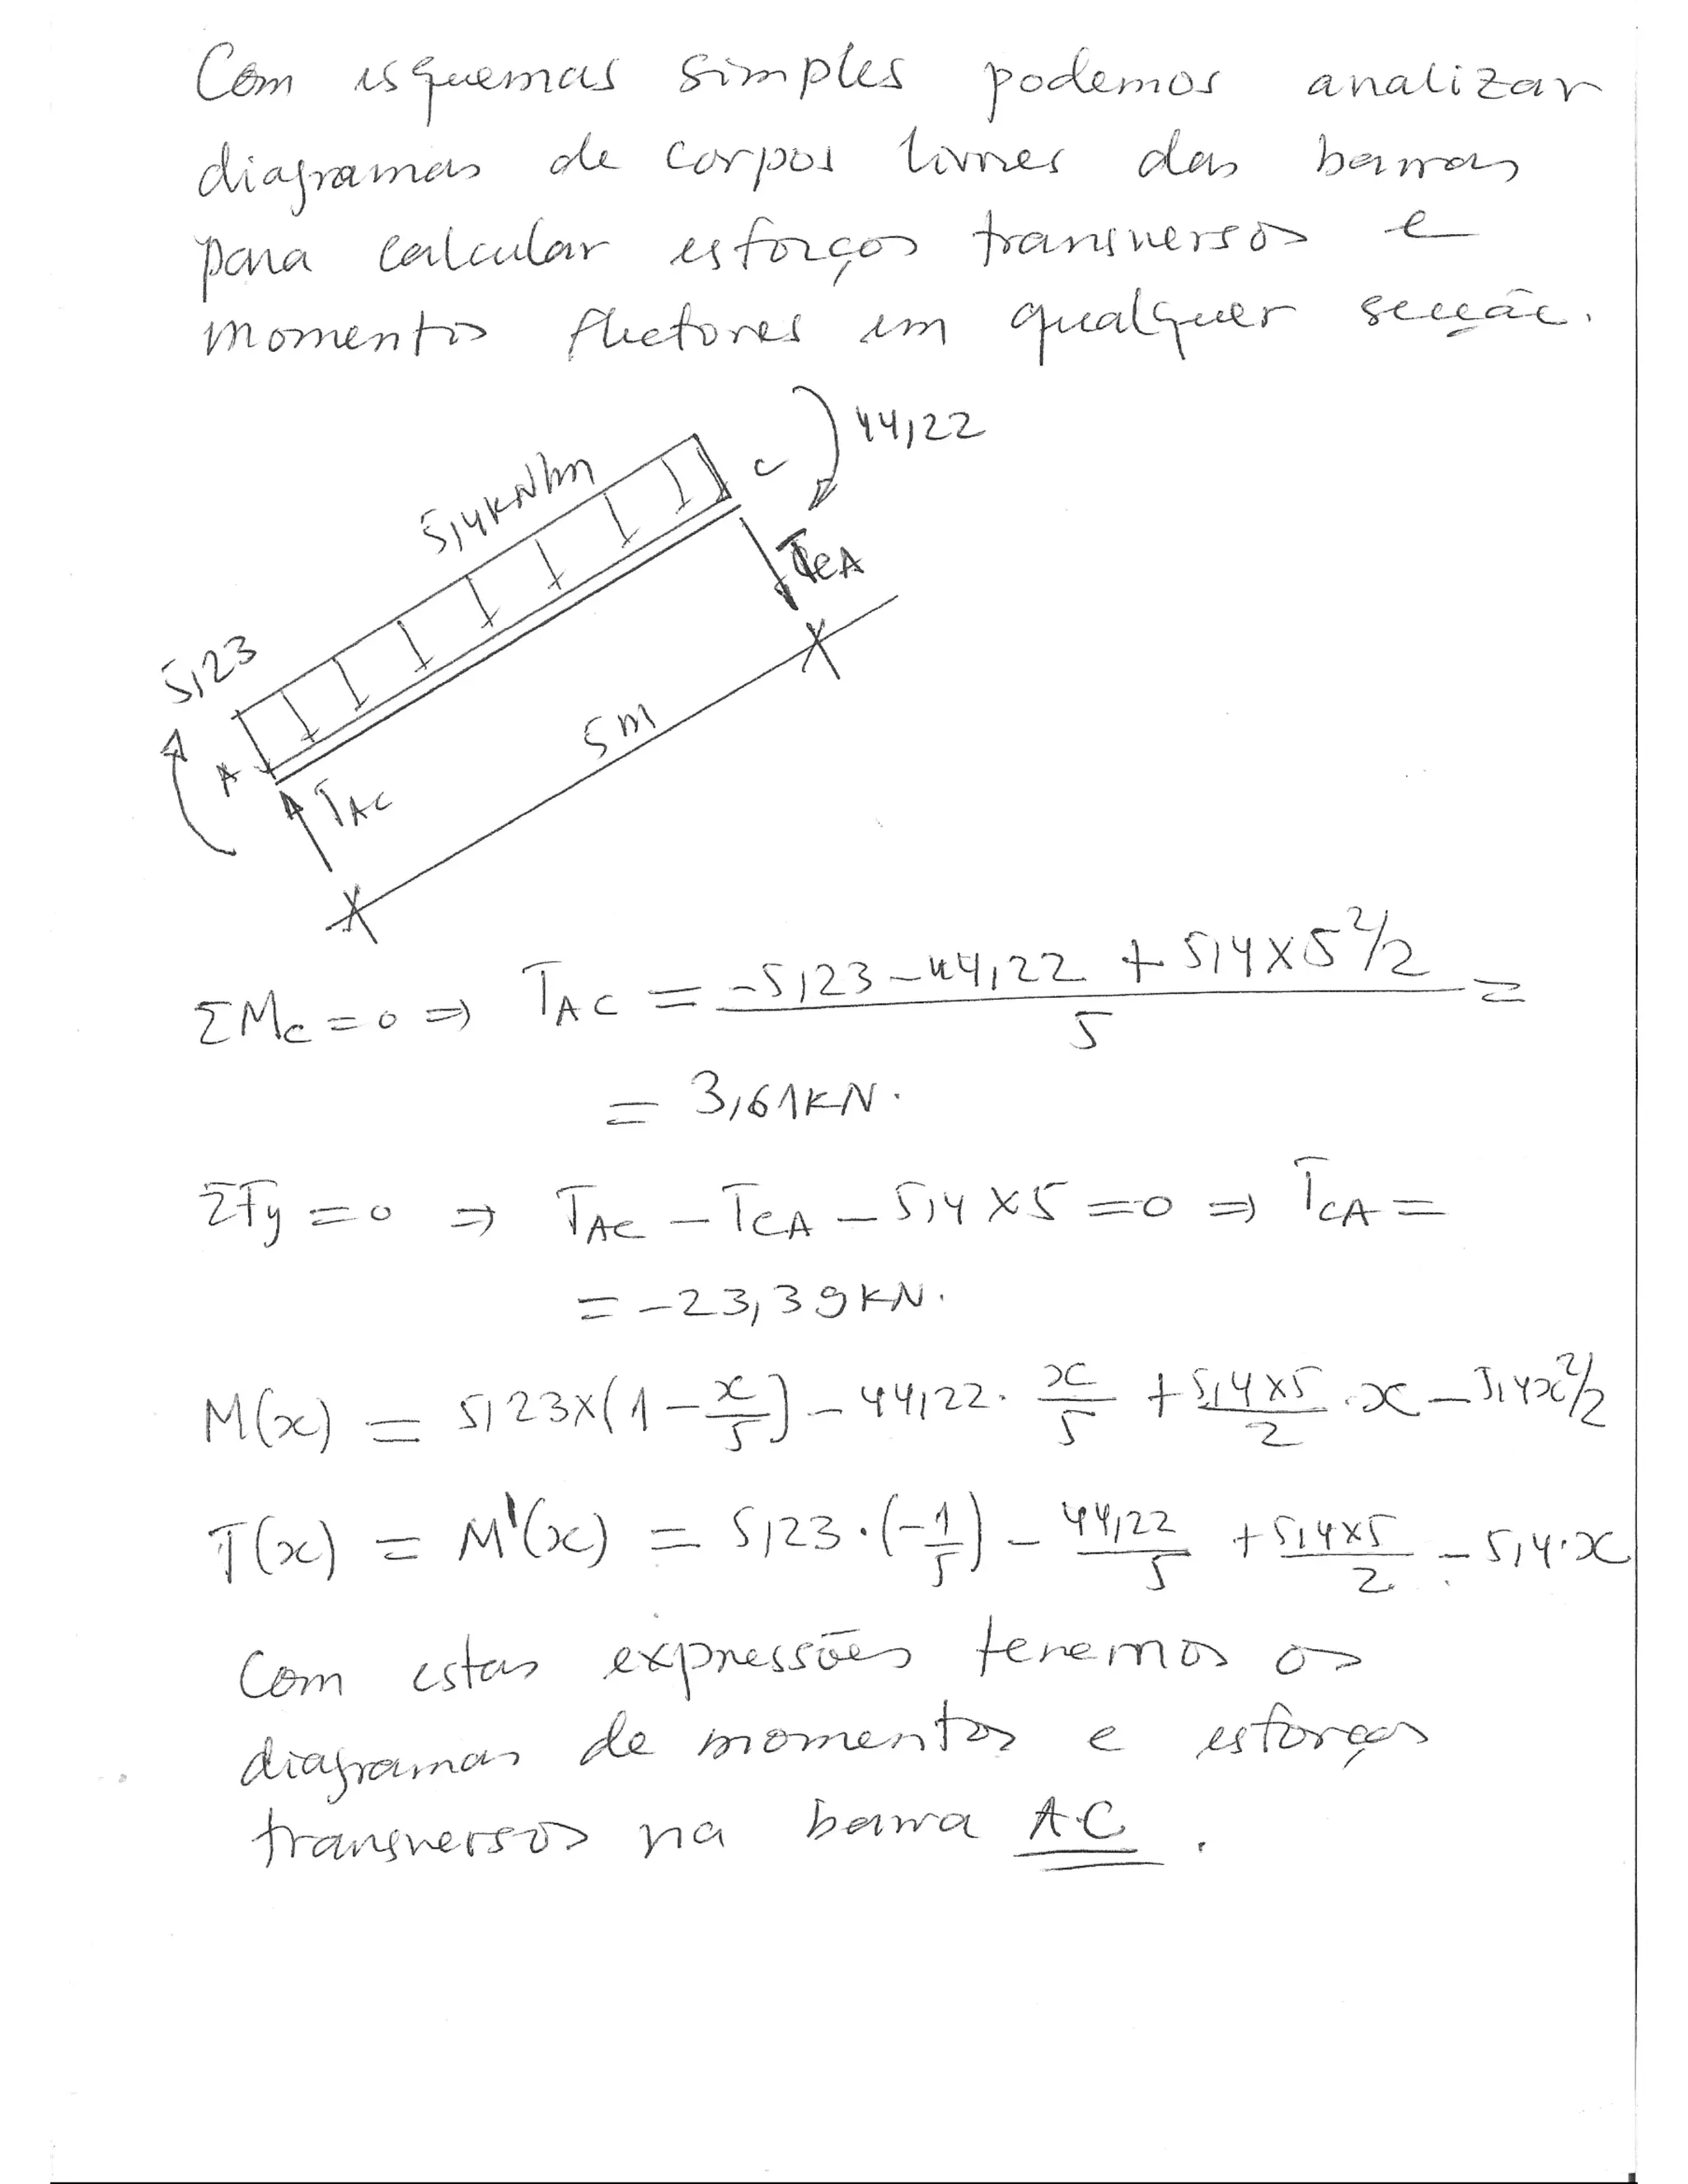 Com esquemas simples podemos analizar
diagramas de corpos livres das barras
para calcular esforços transversos e
momentos flectores em qualquer secção.
44,22
C
5,4kN/m
TCA
5,23
5m
A
TAC
ΣMc=0 ⇒ TAC = (-5,23-44,22 + 5,4×5²/2)/5 =
= 3,61kN.
ΣFy=0 ⇒ TAC - TCA - 5,4×5=0 ⇒ TCA =
= -23,39kN.
M(x) = 5,23×(1-x/5) - 44,22·x/5 + 5,4×5/2·x - 5,4x²/2
T(x) = M'(x) = 5,23·(-1/5) - 44,22/5 + 5,4×5/2 - 5,4·x
Com estas expressões teremos os
diagramas de momentos e esforços
transversos na barra AC.